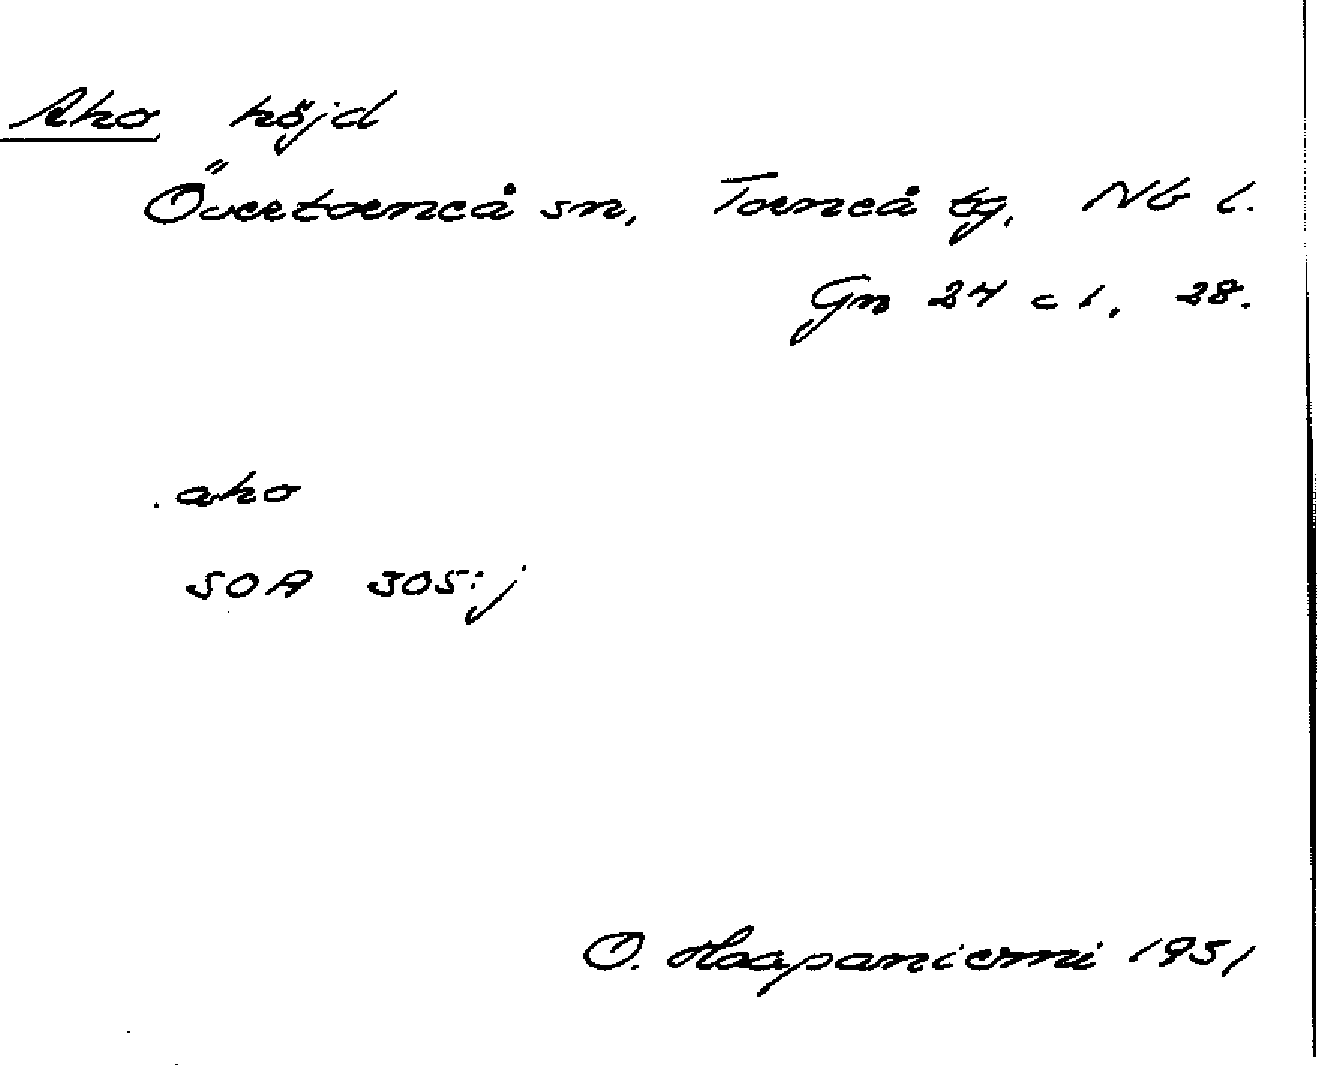 Aho höjd
Övertorneå sn, Torneå tg, Nb l.
Gn 24 c 1, 28.
.aho
SOA 305:j
O. Haapaniemi 1951